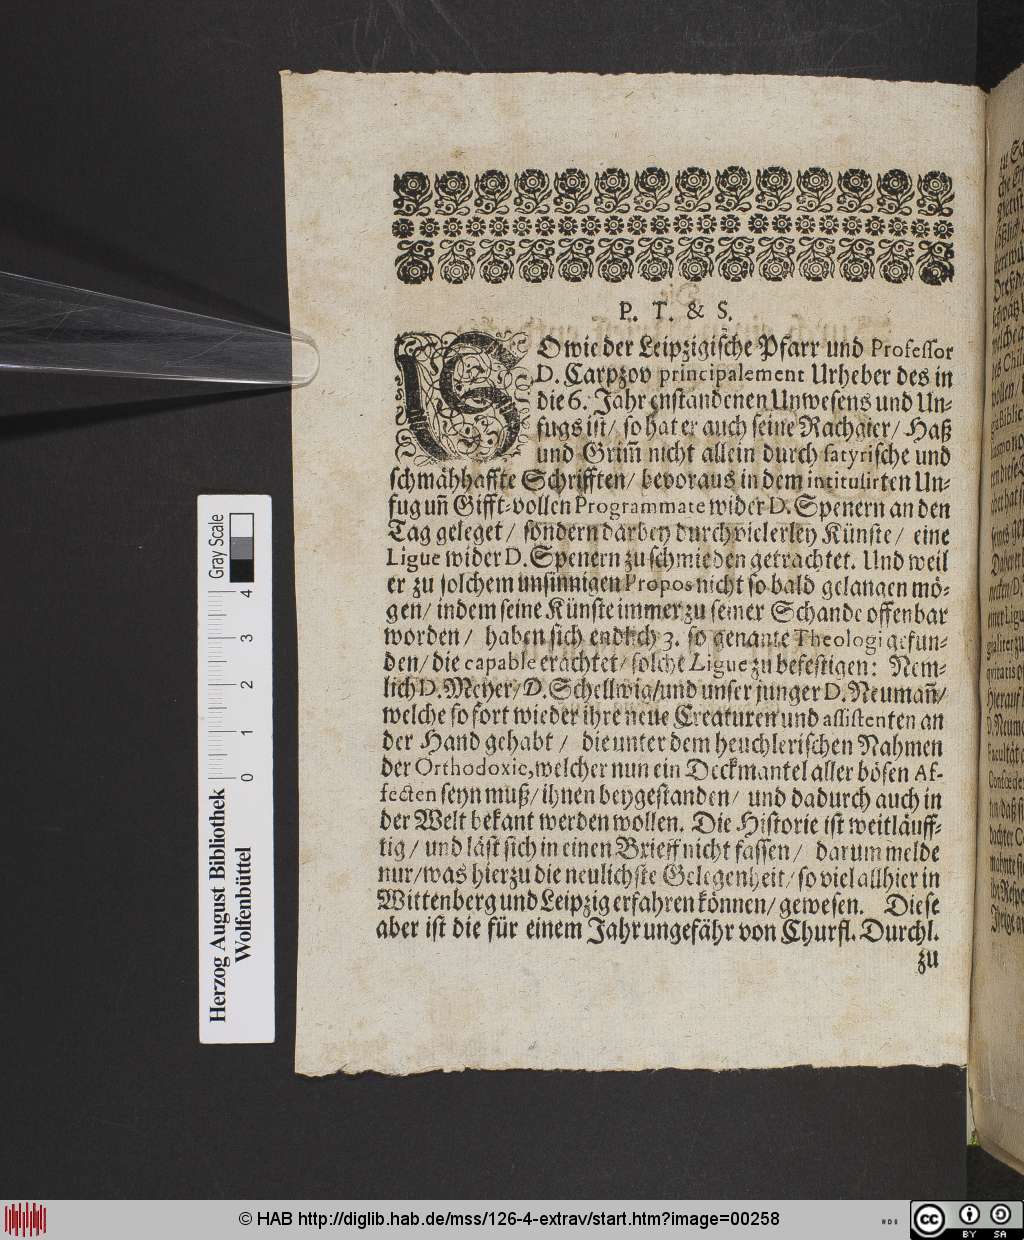 P. T. & S.
SOwie der Leipzigische Pfarr und Professor
D. Carpzov principalement Urheber des in
die 6. Jahr enstandenen Unwesens und Un-
fugs ist/ so hat er auch seine Rachgier/ Haß
und Grim̃ nicht allein durch satyrische und
schmähhaffte Schrifften/ bevoraus in dem intitulirten Un-
fug un̄ Gifft-vollen Programmate wider D. Spenern an den
Tag geleget/ sondern darbey durch vielerley Künste/ eine
Ligue wider D. Spenern zu schmieden getrachtet. Und weil
er zu solchem unsinnigen Propos nicht so bald gelangen mö-
gen/ indem seine Künste immer zu seiner Schande offenbar
worden/ haben sich endlich 3. so genante Theologi gefun-
den/ die capable erachtet/ solche Ligue zu befestigen: Nem-
lich D. Meyer/ D. Schellwig/ und unser junger D. Neuman̄/
welche so fort wieder ihre neue Creaturen und assistenten an
der Hand gehabt/ die unter dem heuchlerischen Nahmen
der Orthodoxie, welcher nun ein Deckmantel aller bösen Af-
fecten seyn muß/ ihnen beygestanden/ und dadurch auch in
der Welt bekant werden wollen. Die Historie ist weitläuff-
tig/ und läst sich in einen Brieff nicht fassen/ darum melde
nur/ was hierzu die neulichste Gelegenheit/ so viel allhier in
Wittenberg und Leipzig erfahren können/ gewesen. Diese
aber ist die für einem Jahr ungefähr von Churfl. Durchl.
zu
Herzog August Bibliothek
Wolfenbüttel
0 1 2 3 4
Gray Scale
© HAB http://diglib.hab.de/mss/126-4-extrav/start.htm?image=00258
cc BY SA